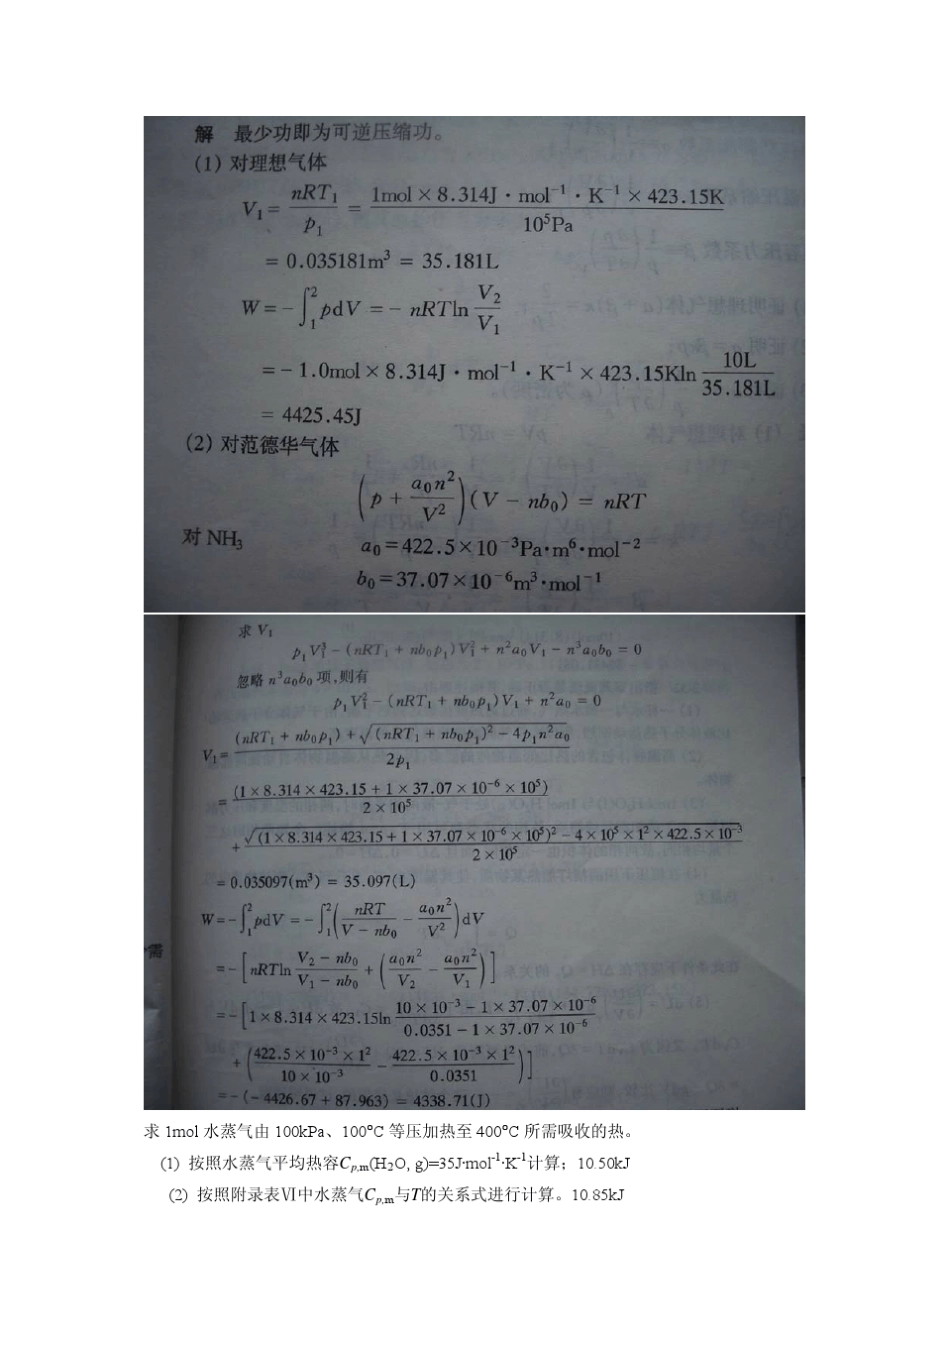 解 最少功即为可逆压缩功。
(1) 对理想气体
V₁ = nRT₁/p₁ = 1mol × 8.314J·mol⁻¹·K⁻¹ × 423.15K / 10⁵Pa
= 0.035181m³ = 35.181L
W = -∫₁² pdV = - nRTln V₂/V₁
= - 1.0mol × 8.314J·mol⁻¹·K⁻¹ × 423.15Kln 10L/35.181L
= 4425.45J
(2) 对范德华气体
(p + a₀n²/V²)(V - nb₀) = nRT
对 NH₃ a₀ = 422.5×10⁻³Pa·m⁶·mol⁻²
b₀ = 37.07×10⁻⁶m³·mol⁻¹
求 V₁
p₁V₁³ - (nRT₁ + nb₀p₁)V₁² + n²a₀V₁ - n³a₀b₀ = 0
忽略 n³a₀b₀ 项,则有
p₁V₁² - (nRT₁ + nb₀p₁)V₁ + n²a₀ = 0
V₁ = (nRT₁ + nb₀p₁) + √(nRT₁ + nb₀p₁)² - 4p₁n²a₀ / 2p₁
= (1 × 8.314 × 423.15 + 1 × 37.07 × 10⁻⁶ × 10⁵) / 2 × 10⁵
+ √(1 × 8.314 × 423.15 + 1 × 37.07 × 10⁻⁶ × 10⁵)² - 4 × 10⁵ × 1² × 422.5 × 10⁻³ / 2 × 10⁵
= 0.035097(m³) = 35.097(L)
W = -∫₁² pdV = -∫₁² (nRT/(V - nb₀) - a₀n²/V²)dV
= -[nRTln (V₂ - nb₀)/(V₁ - nb₀) + (a₀n²/V₂ - a₀n²/V₁)]
= -[1 × 8.314 × 423.15ln (10 × 10⁻³ - 1 × 37.07 × 10⁻⁶)/(0.0351 - 1 × 37.07 × 10⁻⁶)
+ (422.5 × 10⁻³ × 1²/10 × 10⁻³ - 422.5 × 10⁻³ × 1²/0.0351)]
= -(-4426.67 + 87.963) = 4338.71(J)
需
求 1mol 水蒸气由 100kPa、100°C 等压加热至 400°C 所需吸收的热。
(1) 按照水蒸气平均热容Cp,m(H₂O, g)=35J·mol⁻¹·K⁻¹计算；10.50kJ
(2) 按照附录表Ⅵ中水蒸气Cp,m与T的关系式进行计算。10.85kJ